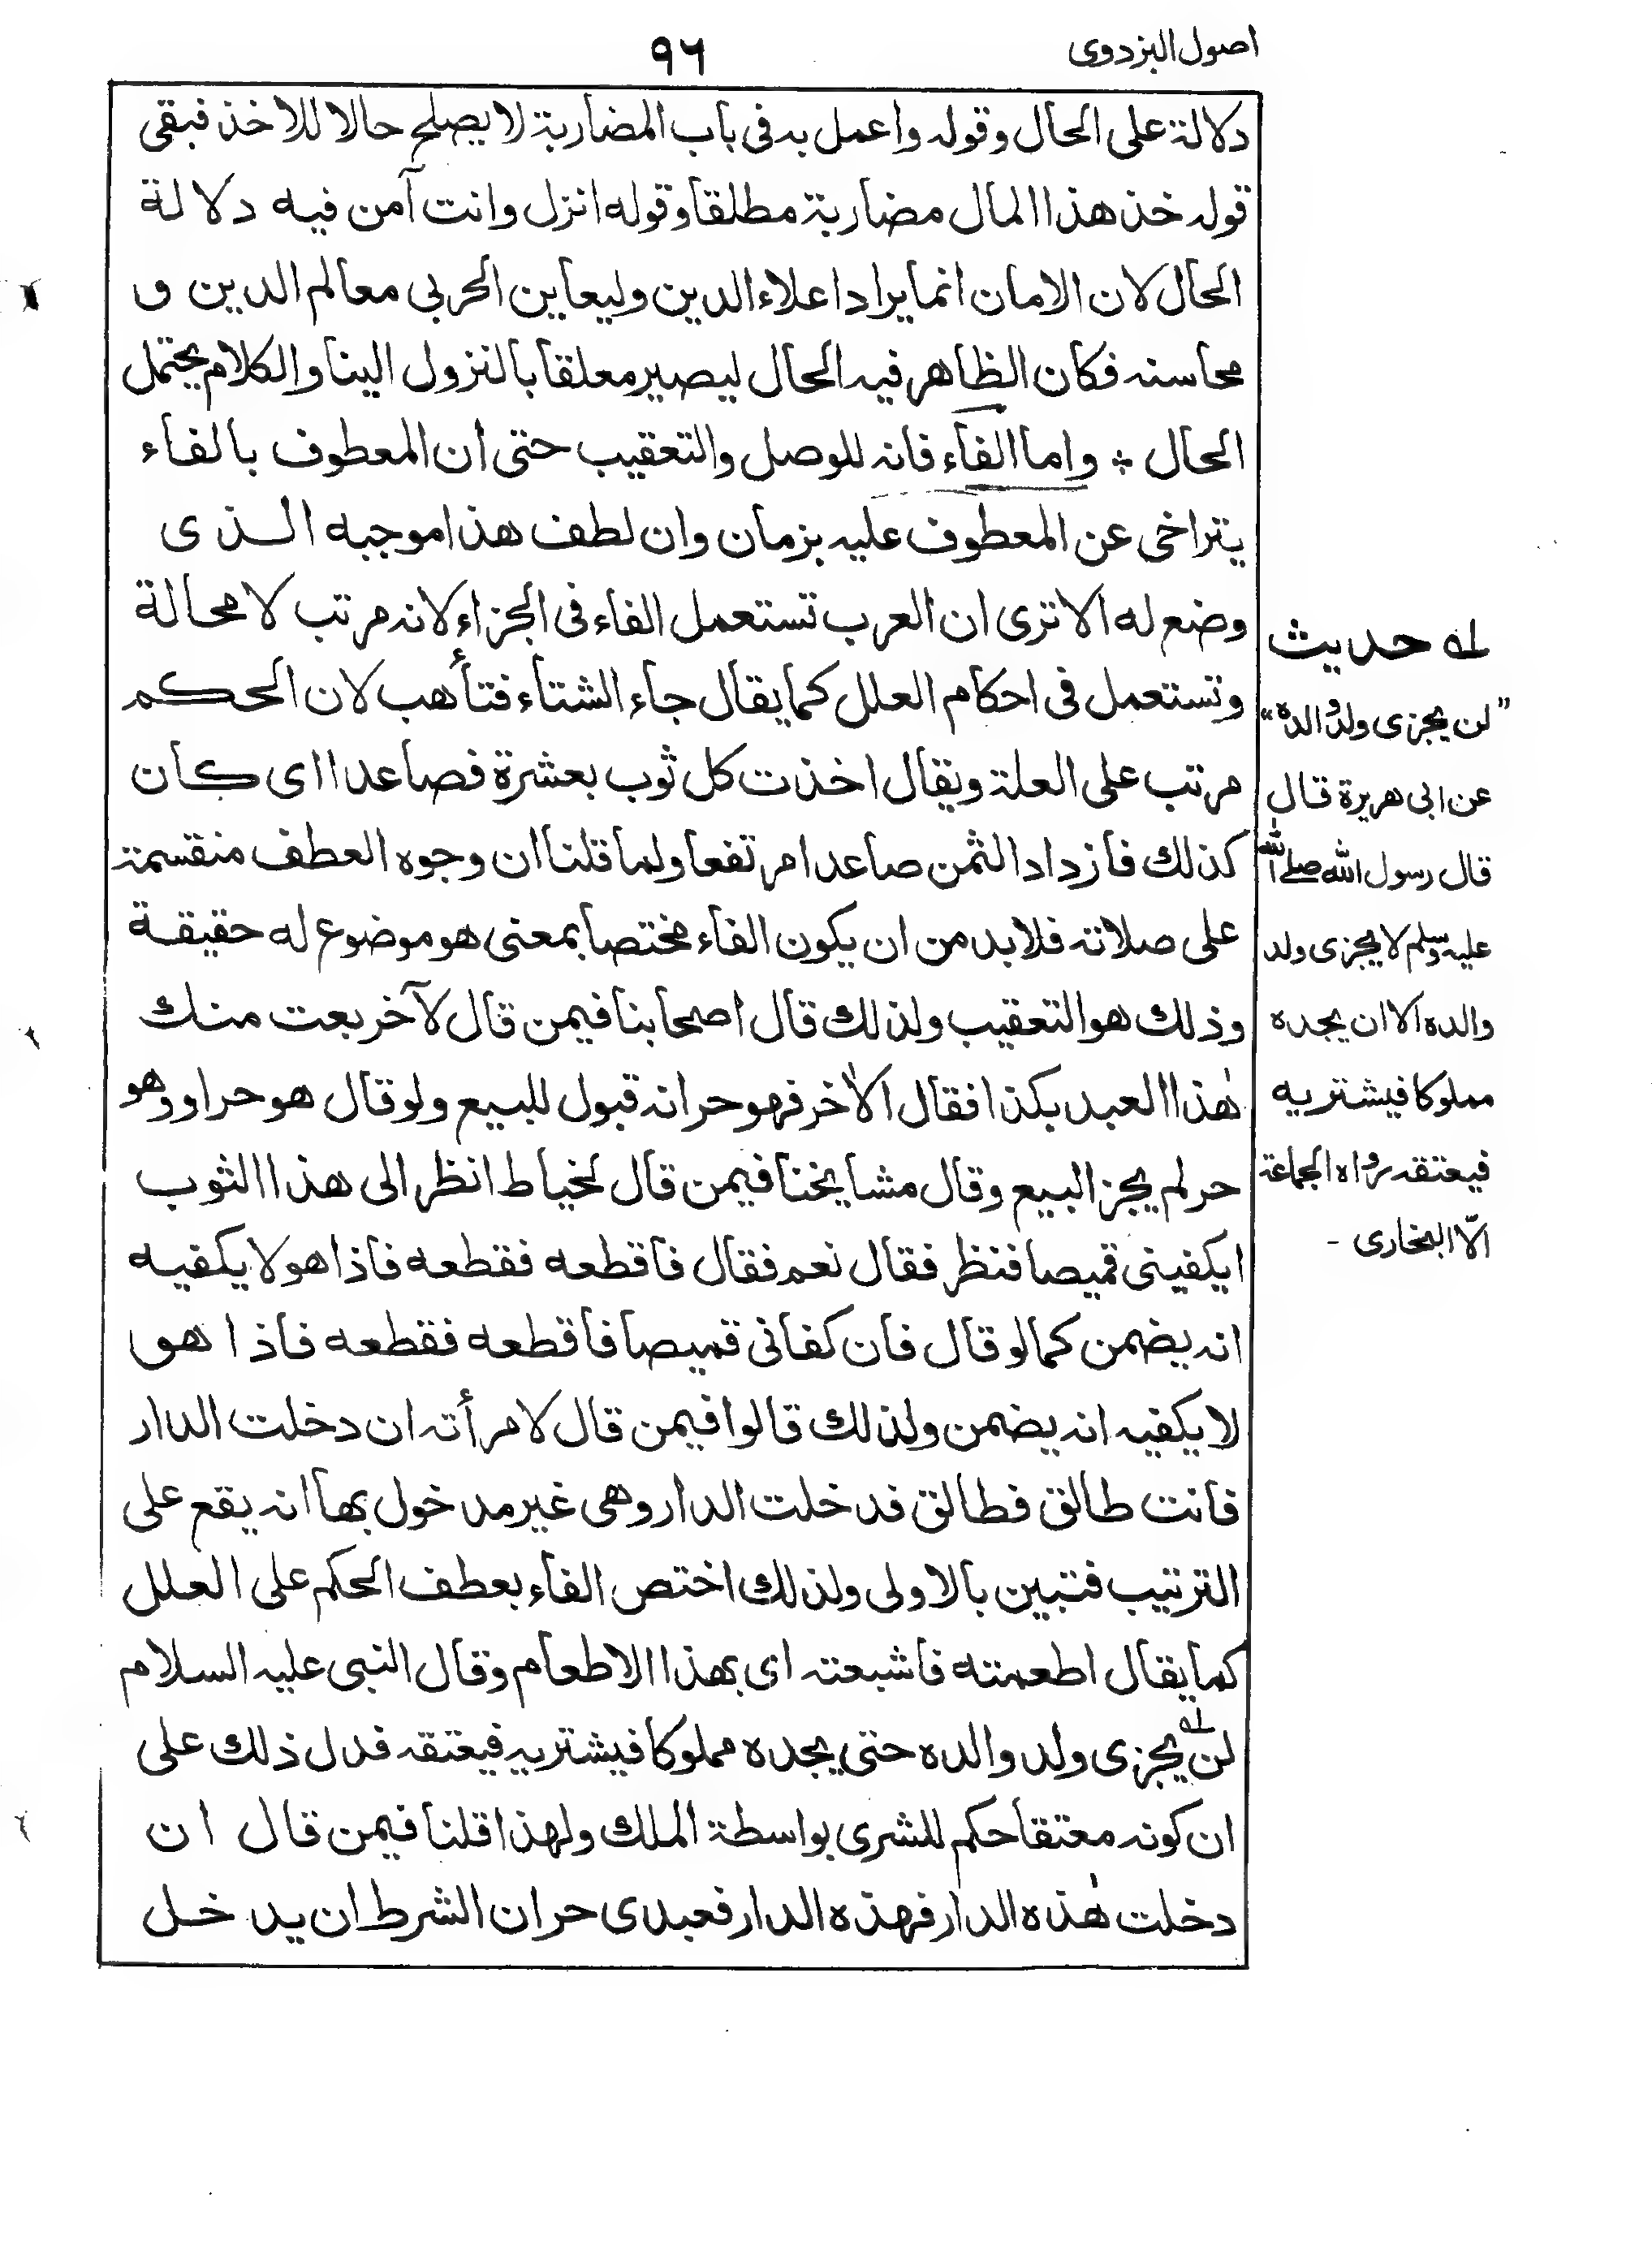 اصول البزدوى
٩٦
دلالة على الحال وقوله واعمل به فى باب المضاربة لا يصلح حالا للاخذ فبقى
قوله خذ هذا المال مضاربة مطلقا وقوله انزل وانت آمن فيه دلالة
الحال لان الامان انما يراد اعلاء الدين وليعاين الحربى معالم الدين و
محاسنه فكان الظاهر فيه الحال ليصير معلقا بالنزول الينا والكلام يحتمل
الحال ٭ واما الفاء فانه للوصل والتعقيب حتى ان المعطوف بالفاء
يتراخى عن المعطوف عليه بزمان وان لطف هذا موجبه الذى
وضع له الا ترى ان العرب تستعمل الفاء فى الجزاء لانه مرتب لا محالة
وتستعمل فى احكام العلل كما يقال جاء الشتاء فتأهب لان الحكم
مرتب على العلة ويقال اخذت كل ثوب بعشرة فصاعدا اى كان
كذلك فازداد الثمن صاعدا مرتفعا ولما قلنا ان وجوه العطف منقسمة
على صلاته فلا بد من ان يكون الفاء مختصا بمعنى هو موضوع له حقيقة
وذلك هو التعقيب ولذلك قال اصحابنا فيمن قال لآخر بعت منك
هٰذا العبد بكذا فقال الاٰخر فهو حر انه قبول للبيع ولو قال هو حر او وهو
حر لم يجز البيع وقال مشايخنا فيمن قال لخياط انظر الى هذا الثوب
ايكفينى قميصا فنظر فقال نعم فقال فاقطعه فقطعه فاذا هو لا يكفيه
انه يضمن كما لو قال فان كفانى قميصا فاقطعه فقطعه فاذا هو
لا يكفيه انه يضمن ولذلك قالوا فيمن قال لامرأته ان دخلت الدار
فانت طالق فطالق فدخلت الدار وهى غير مدخول بها انه يقع على
الترتيب فتبين بالاولى ولذلك اختص الفاء بعطف الحكم على العلل
كما يقال اطعمته فاشبعته اى بهذا الاطعام وقال النبى عليه السلام
لن يجزى ولد والده حتى يجده مملوكا فيشتريه فيعتقه فدل ذلك على
ان كونه معتقا حكم للشرى بواسطة الملك ولهذا قلنا فيمن قال ان
دخلت هٰذه الدار فهذه الدار فعبدى حر ان الشرط ان يدخل
له حديث
"لن يجزى ولد والده"
عن ابى هريرة قال
قال رسول الله صلى الله
عليه وسلم لا يجزى ولد
والده الا ان يجده
مملوكا فيشتريه
فيعتقه رواه الجماعة
الّا البخارى -